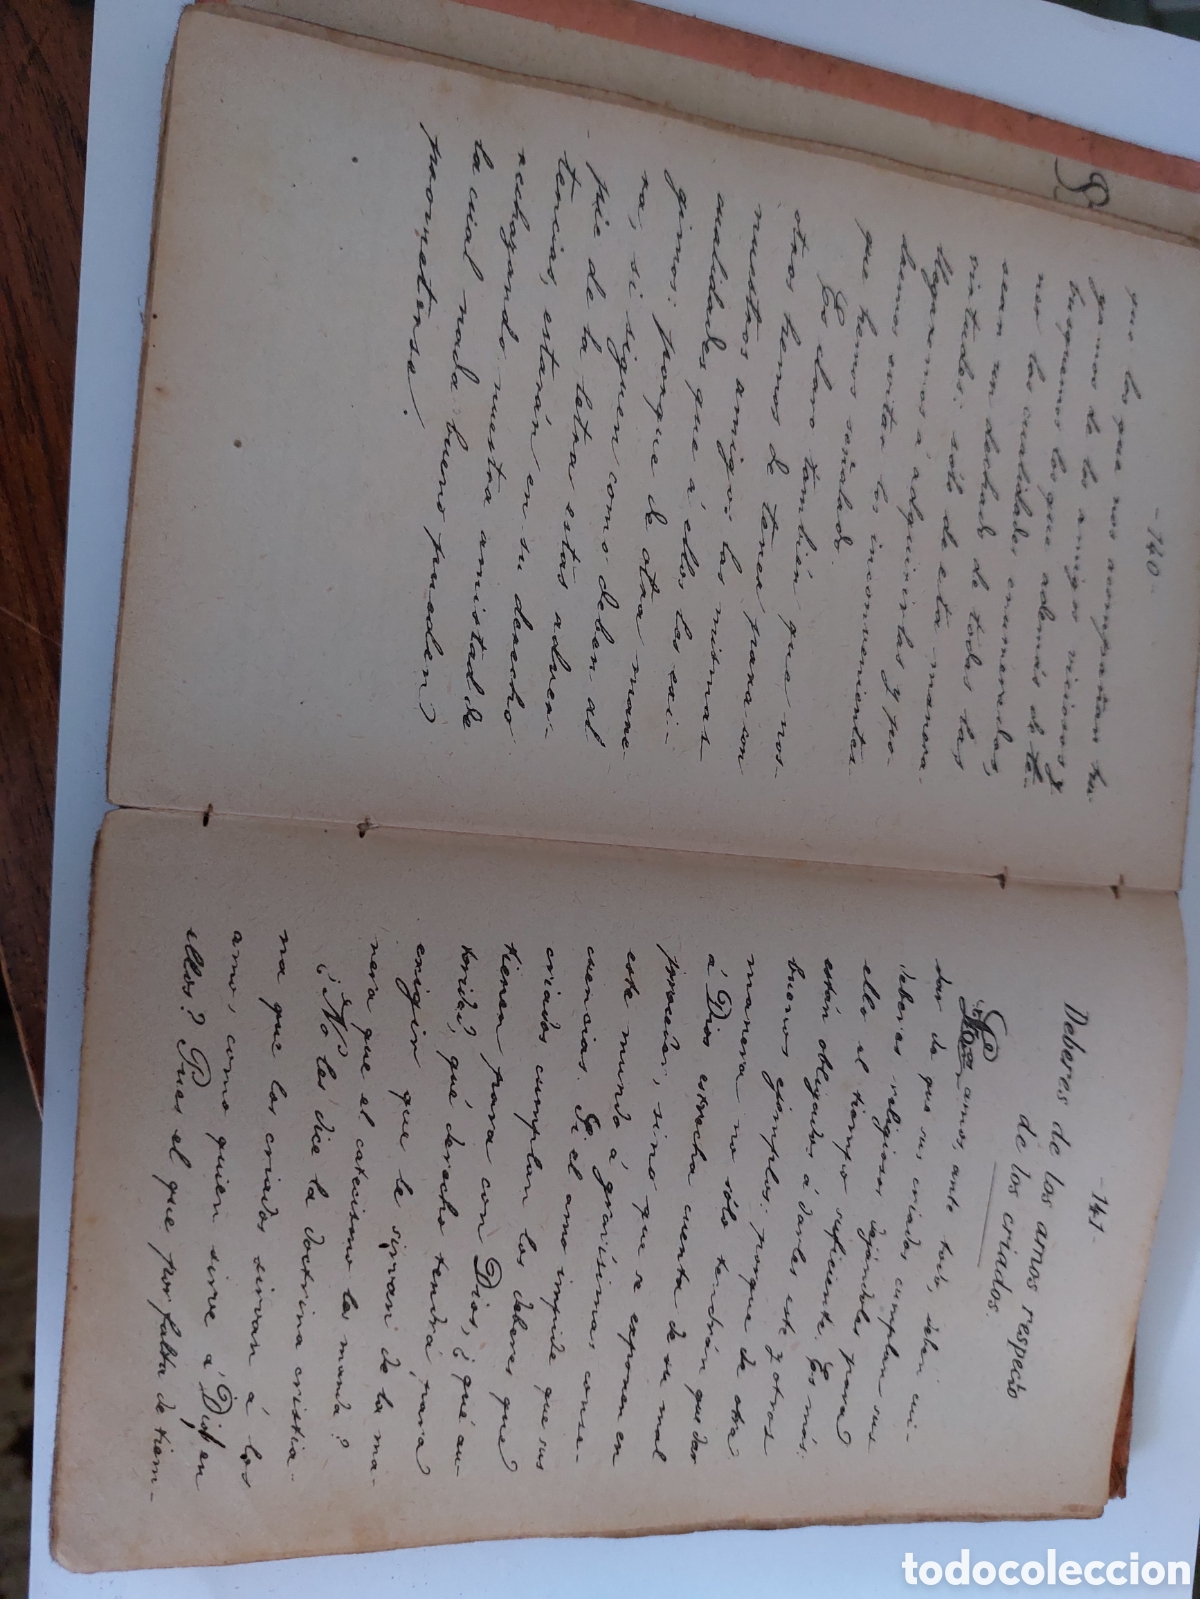 - 140 -
que los que nos acompañan hu-
yamos de los amigos viciosos y
busquemos los que además de te-
ner las cualidades enumeradas,
sean un dechado de todas las
virtudes: sólo de esta manera
llegaremos á adquirirlas y po-
dremos evitar los inconvenientes
que hemos señalado.
Es claro también que nos-
otros hemos de tener para con
nuestros amigos las mismas
cualidades que á ellos les exi-
gimos: porque de otra mane-
ra, si siguen como deben al
pie de la letra estas adver-
tencias, estarán en su derecho
rechazando nuestra amistad de
la cual nada bueno pueden
prometerse.
- 141 -
Deberes de los amos respecto
de los criados.
Los amos, ante todo, deben cui-
dar de que sus criados cumplan sus
deberes religiosos dejándoles para
ello el tiempo suficiente. Es más:
están obligados á darles este y otros
buenos ejemplos: porque de otra
manera no sólo tendrán que dar
á Dios estrecha cuenta de su mal
proceder, sino que se exponen en
este mundo á gravísimas conse-
cuencias. Si el amo impide que sus
criados cumplan los deberes que
tienen para con Dios, ¿qué au-
toridad, qué derecho tendrá para
exigir que le sirvan de la ma-
nera que el catecismo les manda?
¿No les dice la doctrina cristia-
na que los criados sirvan á los
amos, como quien sirve á Dios en
ellos? Pues el que por falta de tiem-
todocoleccion